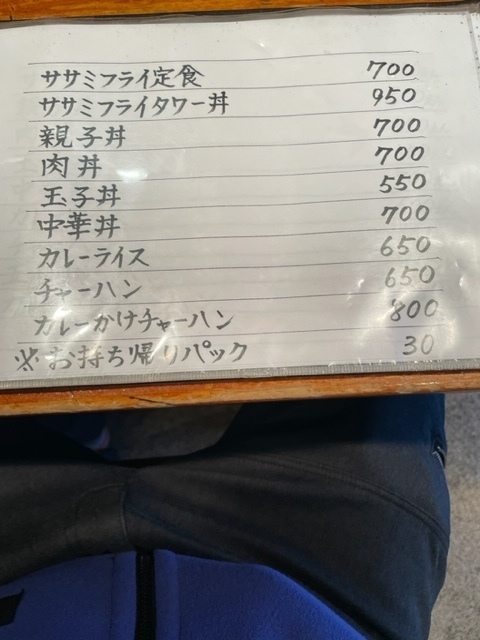 ササミフライ定食 700
ササミフライタワー丼 950
親子丼 700
肉丼 700
玉子丼 550
中華丼 700
カレーライス 650
チャーハン 650
カレーかけチャーハン 800
※お持ち帰りパック 30